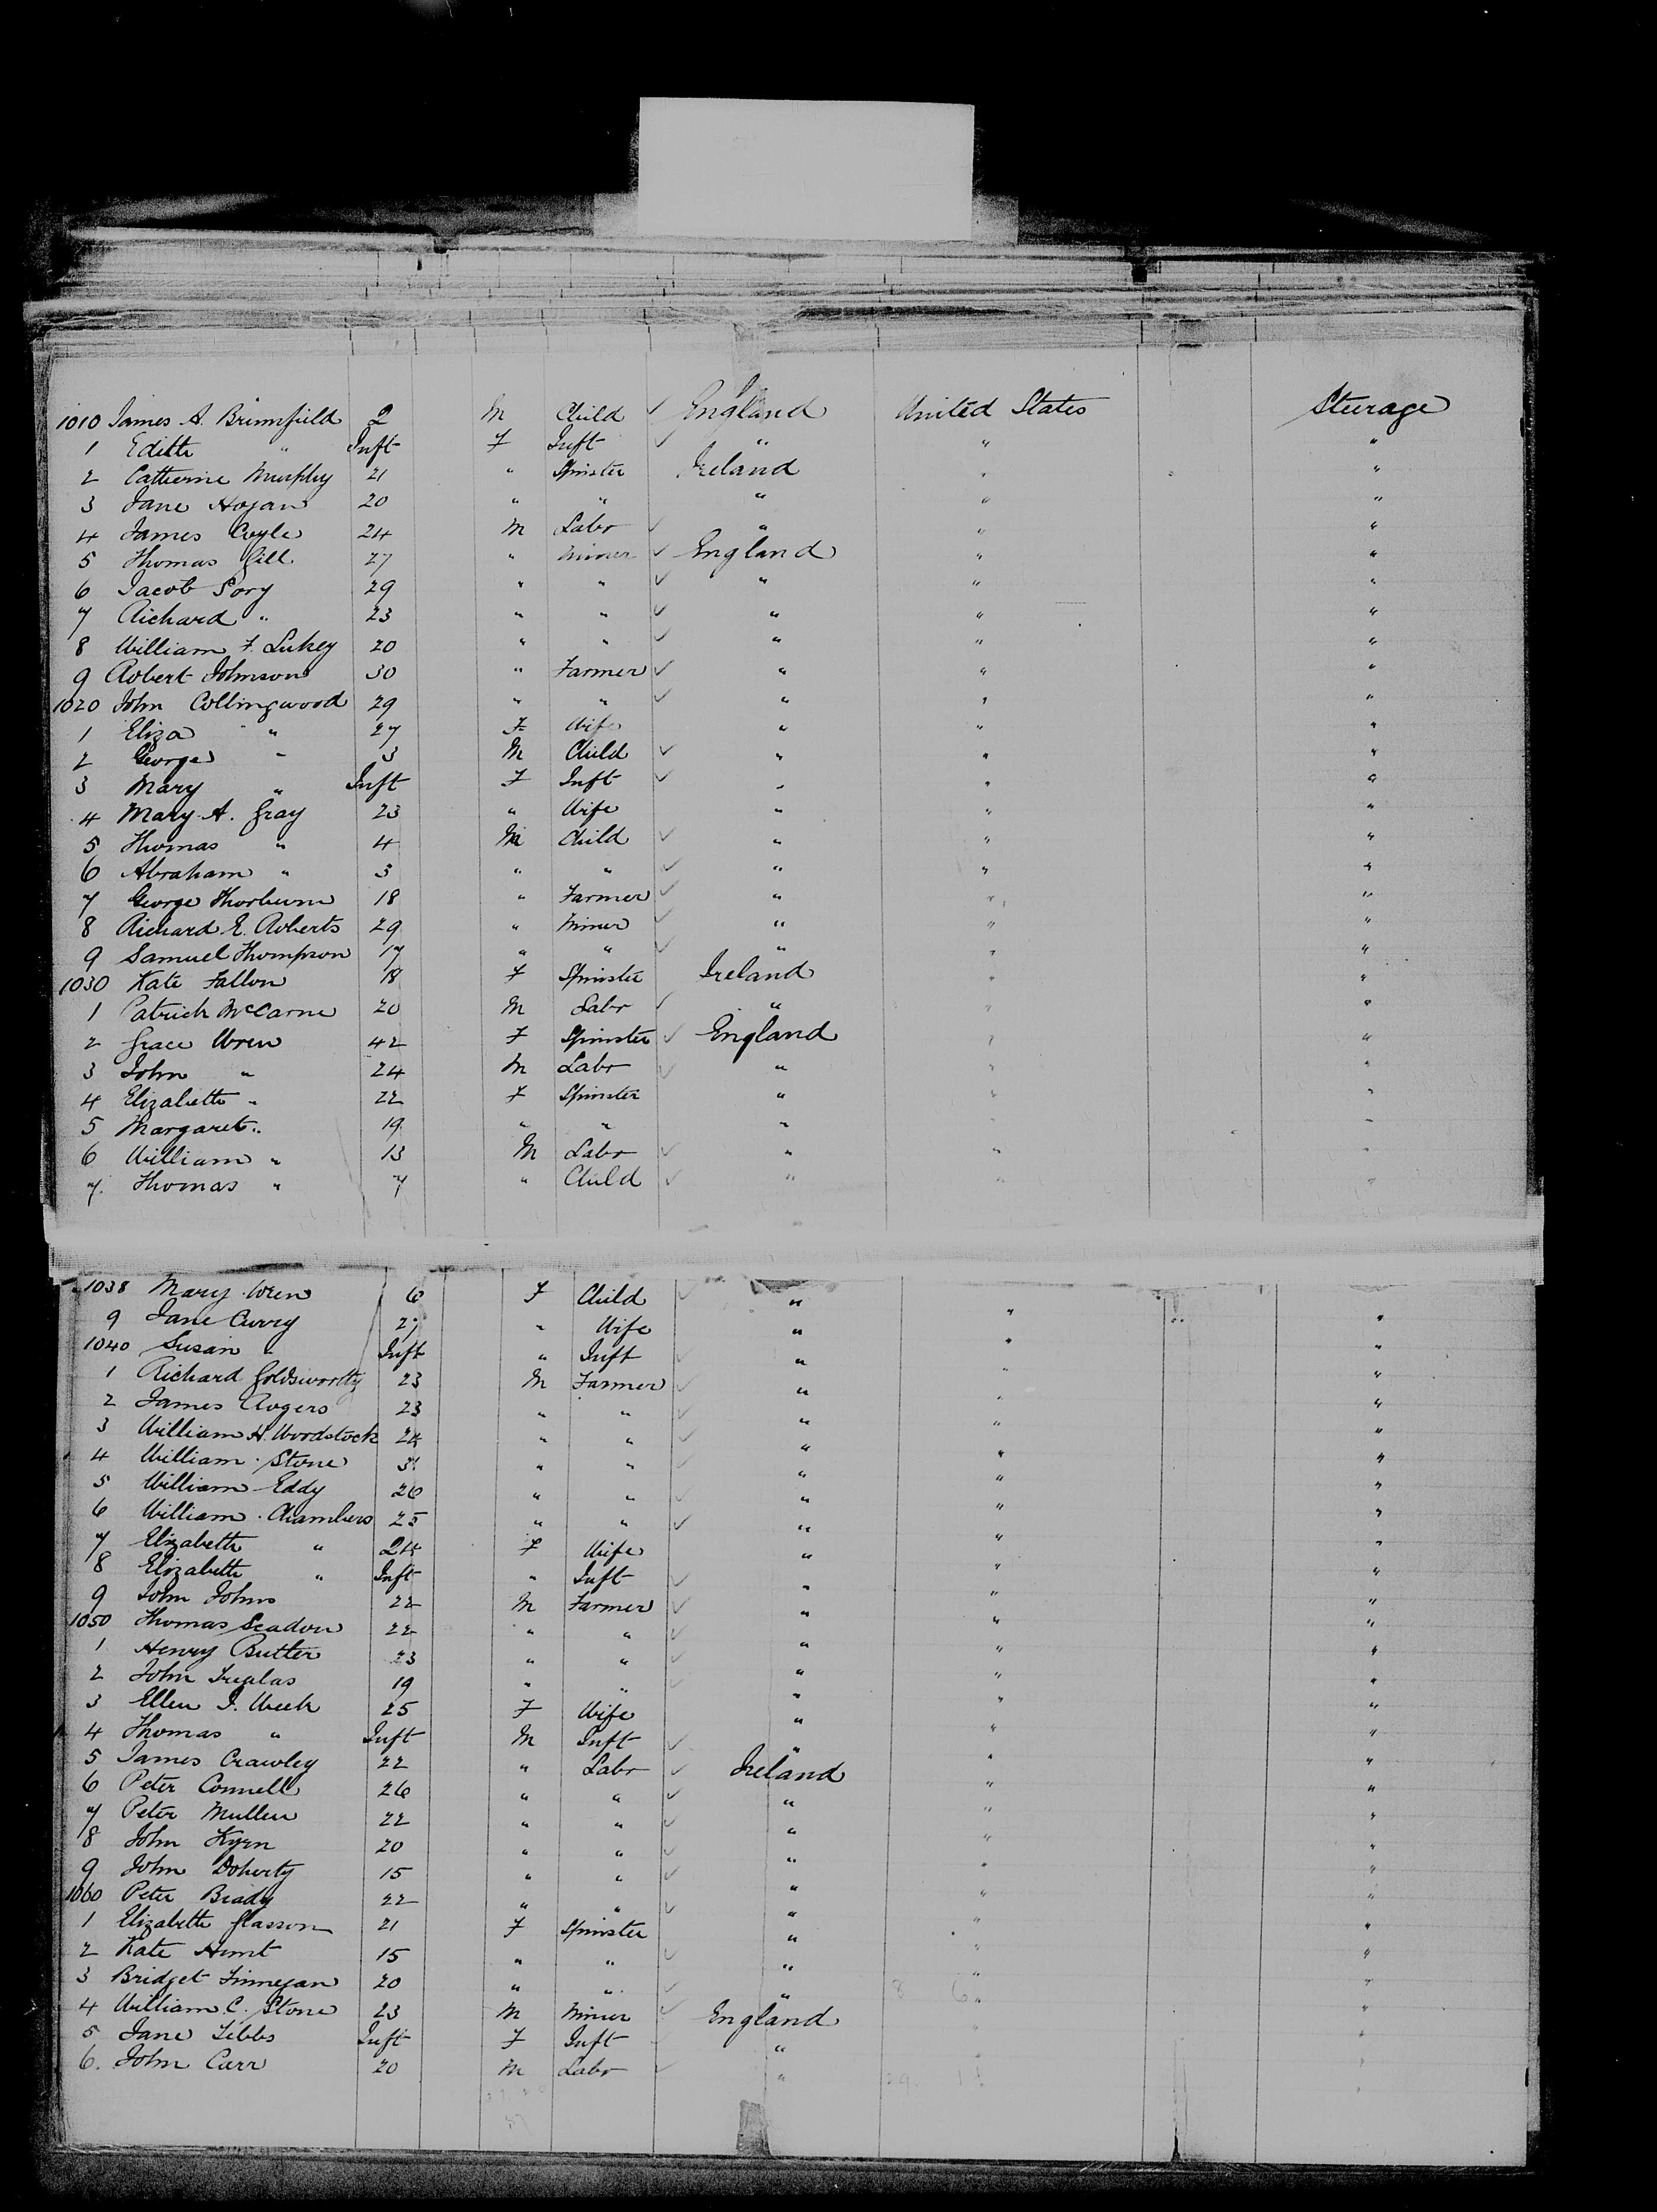 1010 James A. Brimfield 2 M Child ✓ England United States Steerage
1 Edith " Inft F Inft ✓ " " "
2 Catherine Murphy 21 " Spinster Ireland " "
3 Jane Hogan 20 " " " " "
4 James Coyle 24 M Labr ✓ " " "
5 Thomas Gill 27 " Miner ✓ England " "
6 Jacob Sory 29 " " ✓ " " "
7 Richard " 23 " " ✓ " " "
8 William F. Lukey 20 " " ✓ " " "
9 Robert Johnson 30 " Farmer ✓ " " "
1020 John Collingwood 29 " " ✓ " " "
1 Eliza " 27 F Wife " " "
2 George " 3 M Child ✓ " " "
3 Mary " Inft F Inft ✓ " " "
4 Mary A. Gray 23 " Wife " " "
5 Thomas " 4 M Child ✓ " " "
6 Abraham " 3 " " ✓ " " "
7 George Thorburn 18 " Farmer ✓ " " "
8 Richard E. Roberts 29 " Miner ✓ " " "
9 Samuel Thompson 17 " " ✓ " " "
1030 Kate Fallon 18 F Spinster Ireland " "
1 Patrick McCarne 20 M Labr ✓ " " "
2 Grace Wren 42 F Spinster ✓ England " "
3 John " 24 M Labr ✓ " " "
4 Elizabeth " 22 F Spinster " " "
5 Margaret " 19 " " " " "
6 William " 13 M Labr ✓ " " "
7. Thomas " 7 " Child ✓ " " "
1038 Mary Wren 6 F Child ✓ " " "
9 Jane Curry 27 " Wife " " "
1040 Susan " Inft " Inft ✓ " " "
1 Richard Goldsworthy 23 M Farmer ✓ " " "
2 James Rogers 23 " " ✓ " " "
3 William H. Woodstock 24 " " ✓ " " "
4 William Stone " " ✓ " " "
5 William Eddy 26 " " ✓ " " "
6 William Chambers 25 " " ✓ " " "
7 Elizabeth " 24 F Wife " " "
8 Elizabeth " Inft " Inft ✓ " " "
9 John Johns 22 M Farmer ✓ " " "
1050 Thomas Seadon 22 " " ✓ " " "
1 Henry Butler 23 " " ✓ " " "
2 John Treglas 19 " " ✓ " " "
3 Ellen J. Week 25 F Wife " " "
4 Thomas " Inft M Inft ✓ " " "
5 James Crawley 22 " Labr ✓ Ireland " "
6 Peter Connell 26 " " ✓ " " "
7 Peter Mullen 22 " " ✓ " " "
8 John 20 " " ✓ " " "
9 John Doherty 15 " " ✓ " " "
1060 Peter Brady 22 " " ✓ " " "
1 Elizabeth Glasson 21 F Spinster " " "
2 Kate Hunt 15 " " ✓ " " "
3 Bridget Finnegan 20 " " ✓ " " "
4 William C. Stone 23 M Miner ✓ England " "
5 Jane Tibbs Inft F Inft " " "
6. John Carr 20 M Labr ✓ " " "